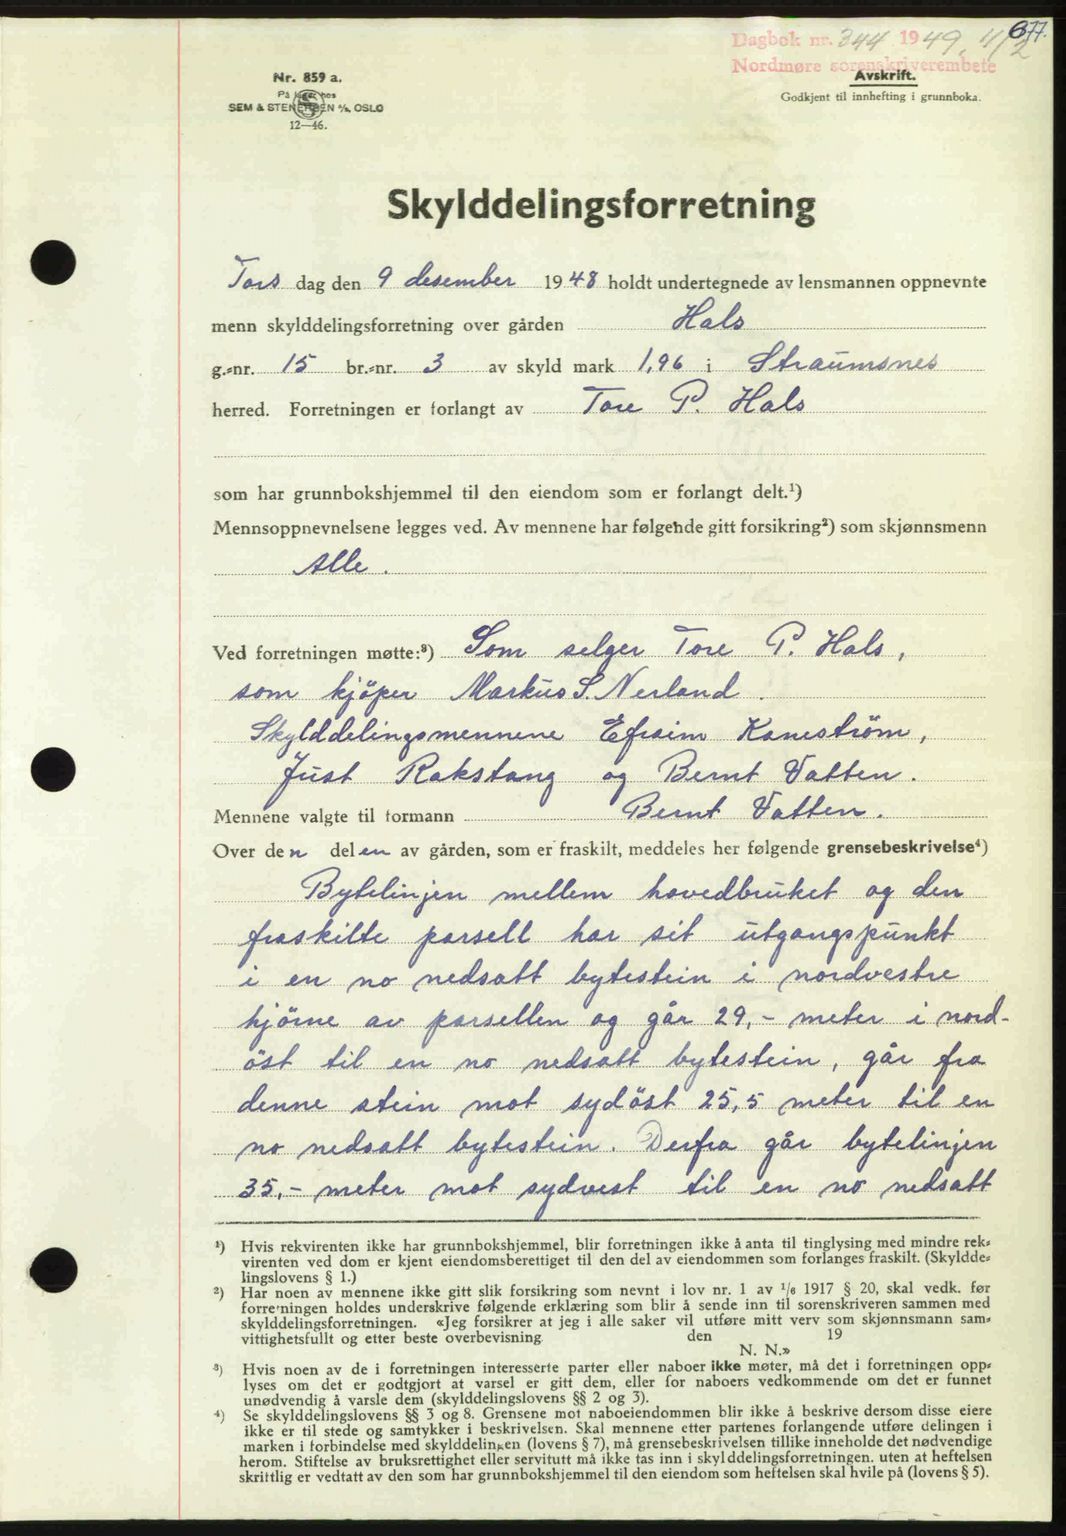 677
Dagbok nr. 344 1949 4/2
Nordmøre sorenskriverembete
Avskrift.
Godkjent til innhefting i grunnboka.
Nr. 859 a.
På lager hos
SEM & STENERSEN A/S, OSLO
12—46.
Skylddelingsforretning
Tors dag den 9 desember 1948 holdt undertegnede av lensmannen oppnevnte
menn skylddelingsforretning over gården Hals
g.-nr. 15 br.-nr. 3 av skyld mark 1,96 i Straumsnes
herred. Forretningen er forlangt av Tore P. Hals
som har grunnbokshjemmel til den eiendom som er forlangt delt.¹)
Mennsoppnevnelsene legges ved. Av mennene har følgende gitt forsikring²) som skjønnsmenn
Alle.
Ved forretningen møtte:³) Som selger Tore P. Hals,
som kjöper Markus S. Nerland.
Skylddelingsmennene Efraim Kaneström,
Just Rakstang og Bernt Vatten.
Mennene valgte til formann Bernt Vatten.
Over den delen av gården, som er fraskilt, meddeles her følgende grensebeskrivelse⁴)
Bytelinjen mellem hovedbruket og den
fraskilte parsell har sit utgangspunkt
i en no nedsatt bytestein i nordvestre
hjörne av parsellen og går 29,- meter i nord-
öst til en no nedsatt bytestein, går fra
denne stein mot sydöst 25,5 meter til en
no nedsatt bytestein. Derfra går bytelinjen
35,- meter mot sydvest til en no nedsatt
¹) Hvis rekvirenten ikke har grunnbokshjemmel, blir forretningen ikke å anta til tinglysing med mindre rek-
virenten ved dom er kjent eiendomsberettiget til den del av eiendommen som forlanges fraskilt. (Skyldde-
lingslovens § 1.)
²) Har noen av mennene ikke gitt slik forsikring som nevnt i lov nr. 1 av 1/6 1917 § 20, skal vedk. før
forretningen holdes underskrive følgende erklæring som blir å sende inn til sorenskriveren sammen med
skylddelingsforretningen. «Jeg forsikrer at jeg i alle saker vil utføre mitt verv som skjønnsmann sam-
vittighetsfullt og etter beste overbevisning den 19
N. N.»
³) Hvis noen av de i forretningen interesserte parter eller naboer ikke møter, må det i forretningen opp-
lyses om det er godtgjort at varsel er gitt dem, eller for naboers vedkommende om det er funnet
unødvendig å varsle dem (skylddelingslovens §§ 2 og 3).
⁴) Se skylddelingslovens §§ 3 og 8. Grensene mot naboeiendommen blir ikke å beskrive dersom disse eiere
ikke er til stede og samtykker i beskrivelsen. Skal mennene etter partenes forlangende utføre delingen i
marken i forbindelse med skylddelingen (lovens § 7), må grensebeskrivelsen tillike inneholde det nødvendige
herom. Stiftelse av bruksrettighet eller servitutt må ikke tas inn i skylddelingsforretningen. uten at heftelsen
skriftlig er vedtatt av den som har grunnbokshjemmel til den eiendom som heftelsen skal hvile på (lovens § 5).